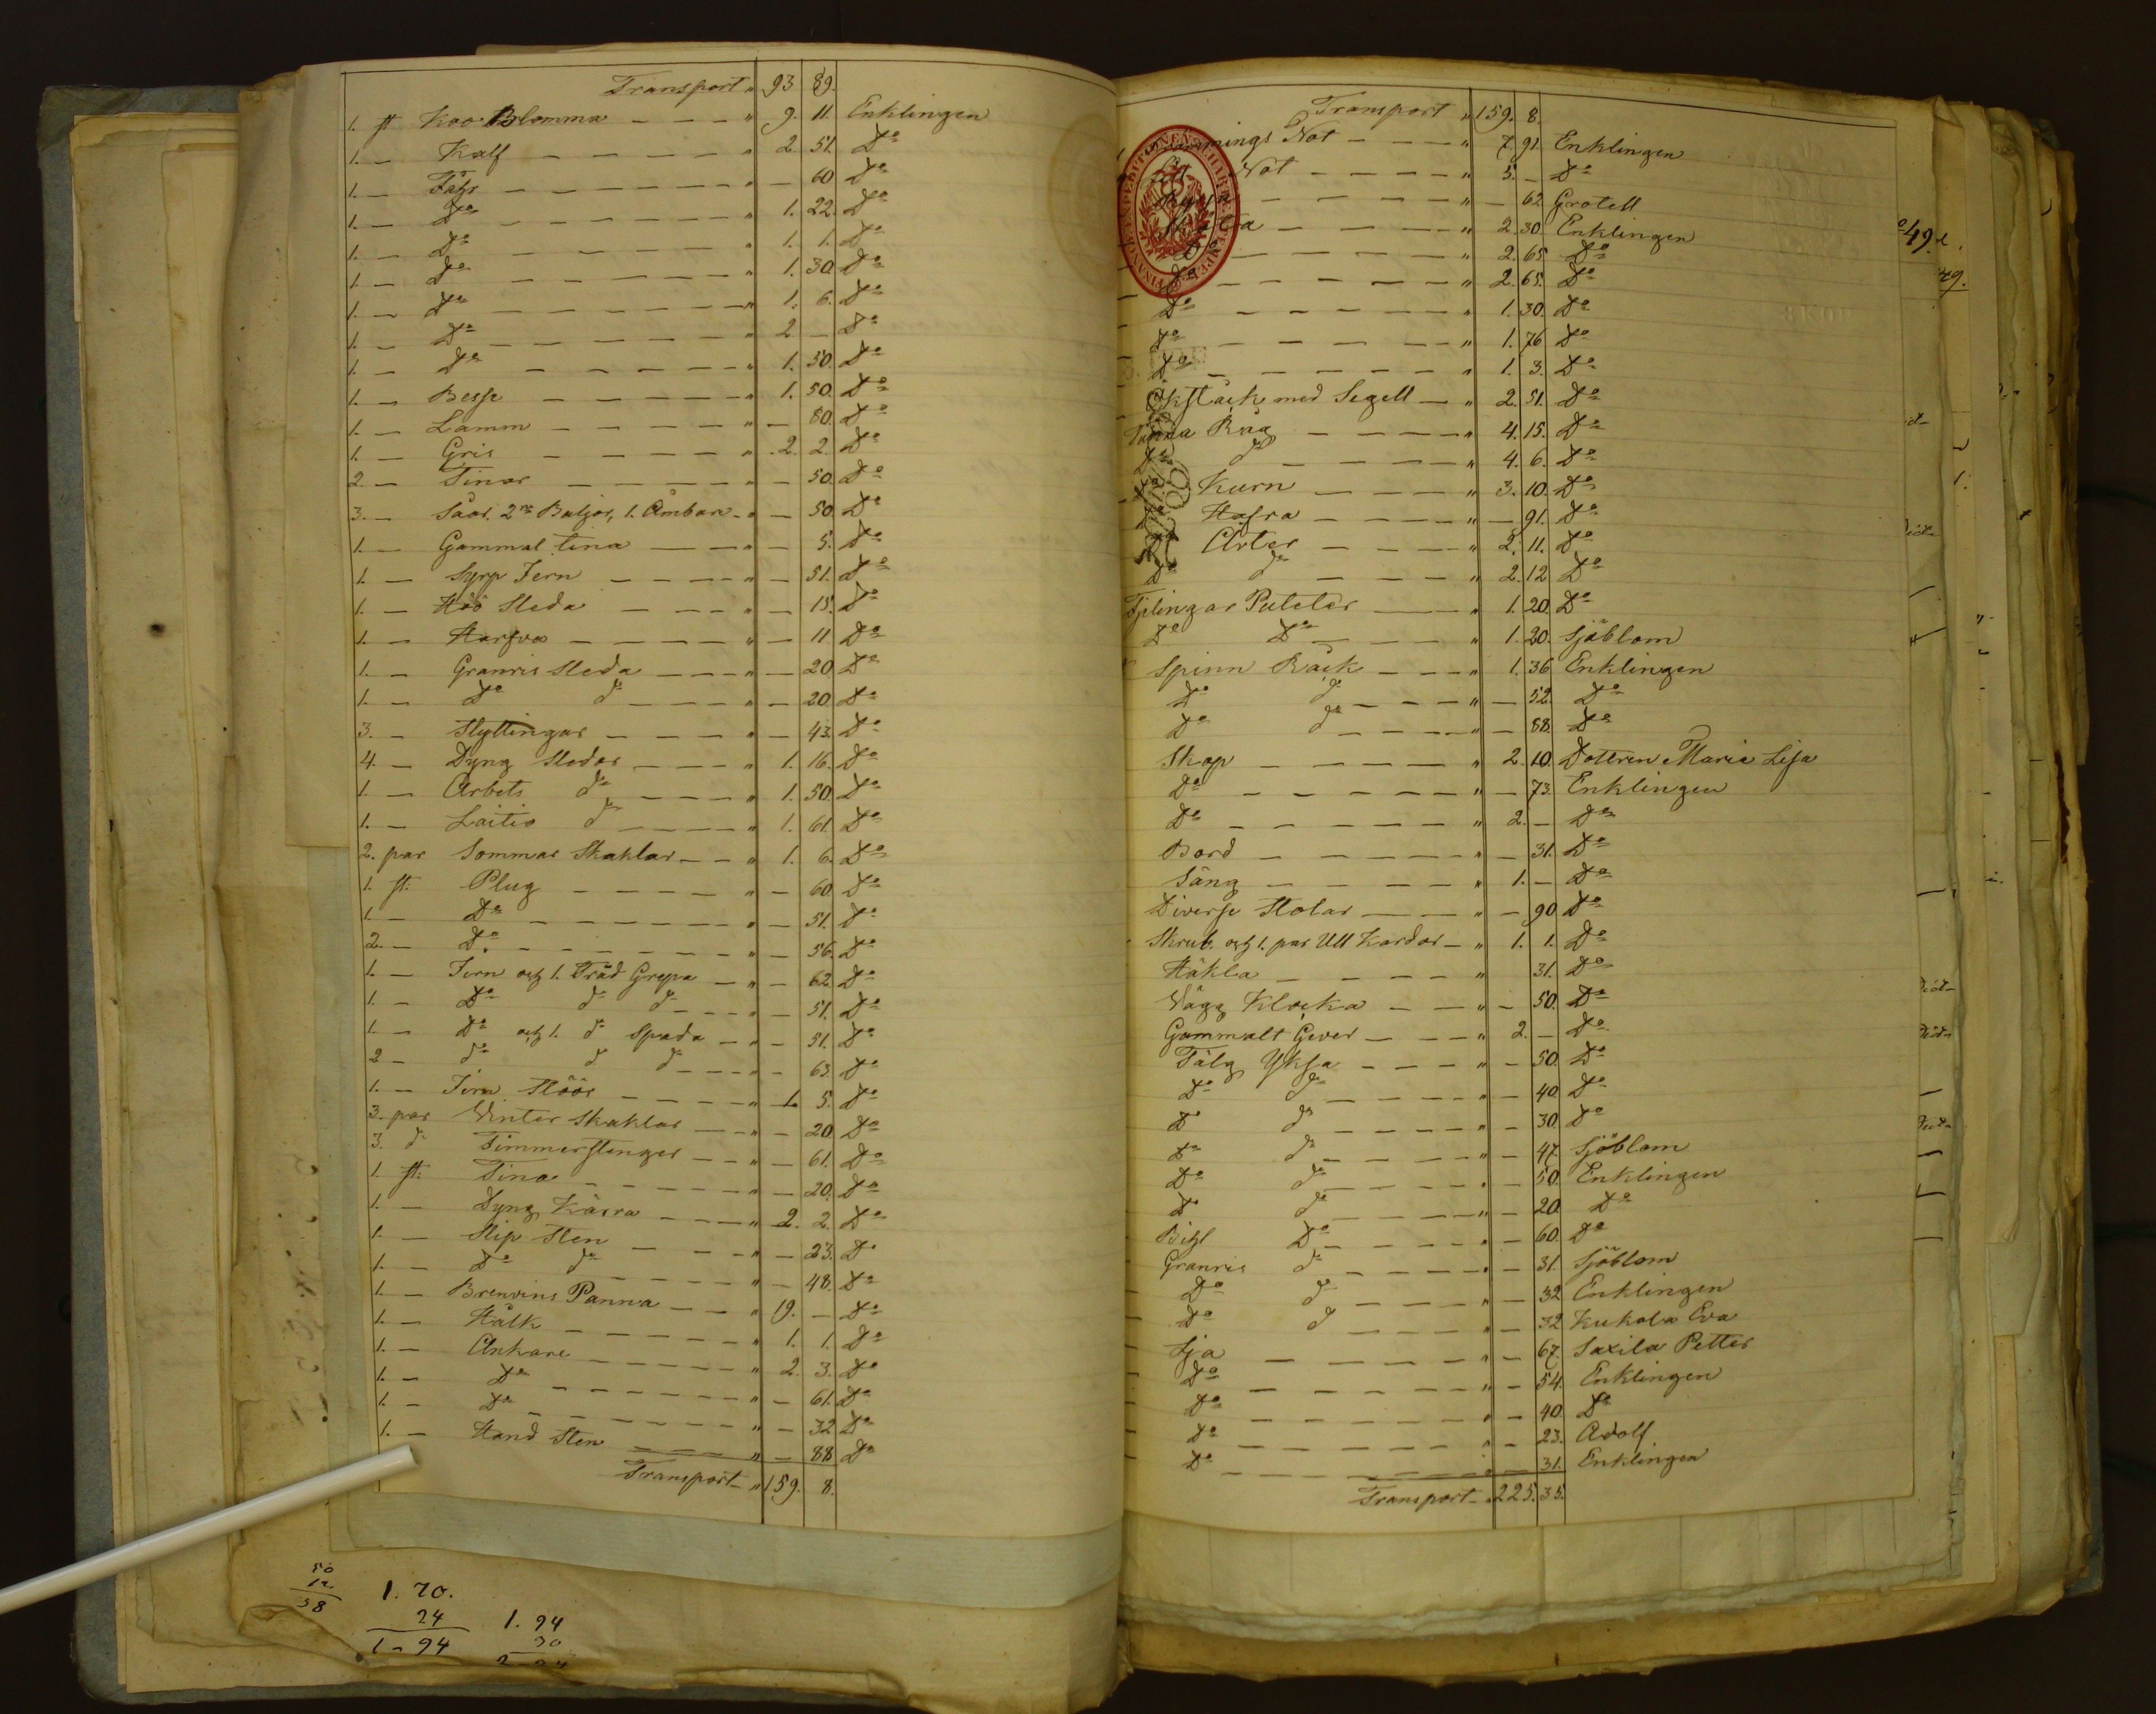 Transport " 93 89.
1. st Koo Blomma — — — " 9. 11. Enklingen
1. — Kalf — — — — — " 2. 51. Do
1. — Fåhr — — — — — " — 60 Do
1. — Do — — — — — " 1. 22. Do
1. — Do — — — — — " 1. 1. Do
1. — Do — — — — — " 1. 30 Do
1. — Do — — — — — " 1. 6. Do
1. — Do — — — — — " 2 — Do
1. — Do — — — — — " 1. 50. Do
1. — Besse — — — — — " 1. 50. Do
1. — Lamm — — — — — " — 80. Do
1. — Gris — — — — — " 2. 2. Do
2 — Tinor — — — — — " — 50. Do
3. — Såar. 2ne Baljor, 1. Ämbare — " — 50 Do
1. — Gammal tina — — — " — 5. Do
1. — Syrp Jern — — — — " — 51. Do
1. — Höö Sleda — — — — " — 15. Do
1. — Harfva — — — — — " — 11 Do
1. — Granris Sleda — — — " — 20 Do
1. — Do do — — — — " — 20 Do
3. — Slyttingar — — — — " — 43. Do
4. — Dyng Sledar — — — " 1. 16. Do
1. — Arbets do — — — — " 1. 50. Do
1. — Laitio do — — — — " 1. 61. Do
2. par Sommar Skaklar — — " 1. 6. Do
1. st: Plug — — — — — " — 60 Do
1. — Do — — — — — " — 51. Do
2. — Do. — — — — — " — 56. Do
1. — Jern och 1. Träd Grepa — " — 62. Do
1. — Do do do — — — " — 51. Do
1. — Do och 1. do Spada — " — 51. Do
2 — do do do — — — " — 63. Do
1. — Jern Stöör — — — — " 1. 5. Do
3. par Winter Skaklar — — " — 20 Do
3. do Timmerstenger — — " — 61. Do
1. st: Tina — — — — — " — 20. Do
1. — Dyng Kärra — — — " 2. 2. Do
1. — Slip Sten — — — — " — 23. Do
1. — Do do — — — — " — 48. Do
1. — Brenvins Panna — — " 19. — Do
1. — Hålk — — — — — " 1. 1. Do
1. — Ankare — — — — " 2. 3. Do
1. — Do — — — — — " — 61. Do
1. — Do — — — — — " — 32 Do
1. — Hand Sten — — — — " — 88 Do
Transport — " 159. 8.
50
12
58
1. 70.
24
1 - 94
1. 94
30
Transport " 159. 8.
Not — — — — " 7. 91. Enklingen
Not — — — — " 5. — Do
— — — — " — 62 Grotell
— — — — " 2. 30. Enklingen
Do — — — — " 2. 65. Do
Do — — — — — " 2. 65. Do
Do — — — — — " 1. 30. Do
Do — — — — — " 1. 76 Do
Do — — — — — " 1. 3. Do
med Segell — " 2. 51. Do
Tunna Råg — — — — " 4. 15. Do
Do do — — — — " 4. 6. Do
Do Kurn — — — — " 3. 10. Do
Do Hafra — — — — " — 91. Do
Do Ärter — — — — " 2. 11. Do
Do do — — — — " 2. 12 Do
Tjelingar Puteler — — " 1. 20. Do
Do Do — — — — " 1. 20. Sjöblom
Spinn Råck — — — " 1. 36 Enklingen
Do do — — — — " — 52. Do
Do do — — — — " — 88. Do
Skåp — — — — — " 2. 10. Dottren Maria Lisa
Do — — — — — " — 73. Enklingen
Do — — — — — " 2. — Do
Bord — — — — — " — 31. Do
Säng — — — — — " 1. — Do
Diverse Stolar — — — " — 90. Do
Skrub. och 1. par Ull Kardor — " 1. 1. Do
Häkla — — — — — " 31. Do
Wägg Klocka — — — " — 50. Do
Gammalt Gever — — — " 2. — Do
Tälg Yksa — — — — " — 50. Do
Do do — — — — " — 40 Do
Do do — — — — " — 30 Do
Do do — — — — " — 47. Sjöblom
Do do — — — — " — 50. Enklingen
Do do — — — — " — 20. Do
Bihl Do — — — — " — 60. Do
Granris do — — — — " — 31. Sjöblom
Do do — — — — " — 32 Enklingen
Do do — — — — " — 32 Kukola Eva
Lja — — — — — " — 67. Saxila Petter
Do — — — — — " — 54. Enklingen
Do — — — — — " — 40. Do
Do — — — — — " — 23. Adolf
Do — — — — — " — 31. Enklingen
Transport — " 225. 35.
49.
49.